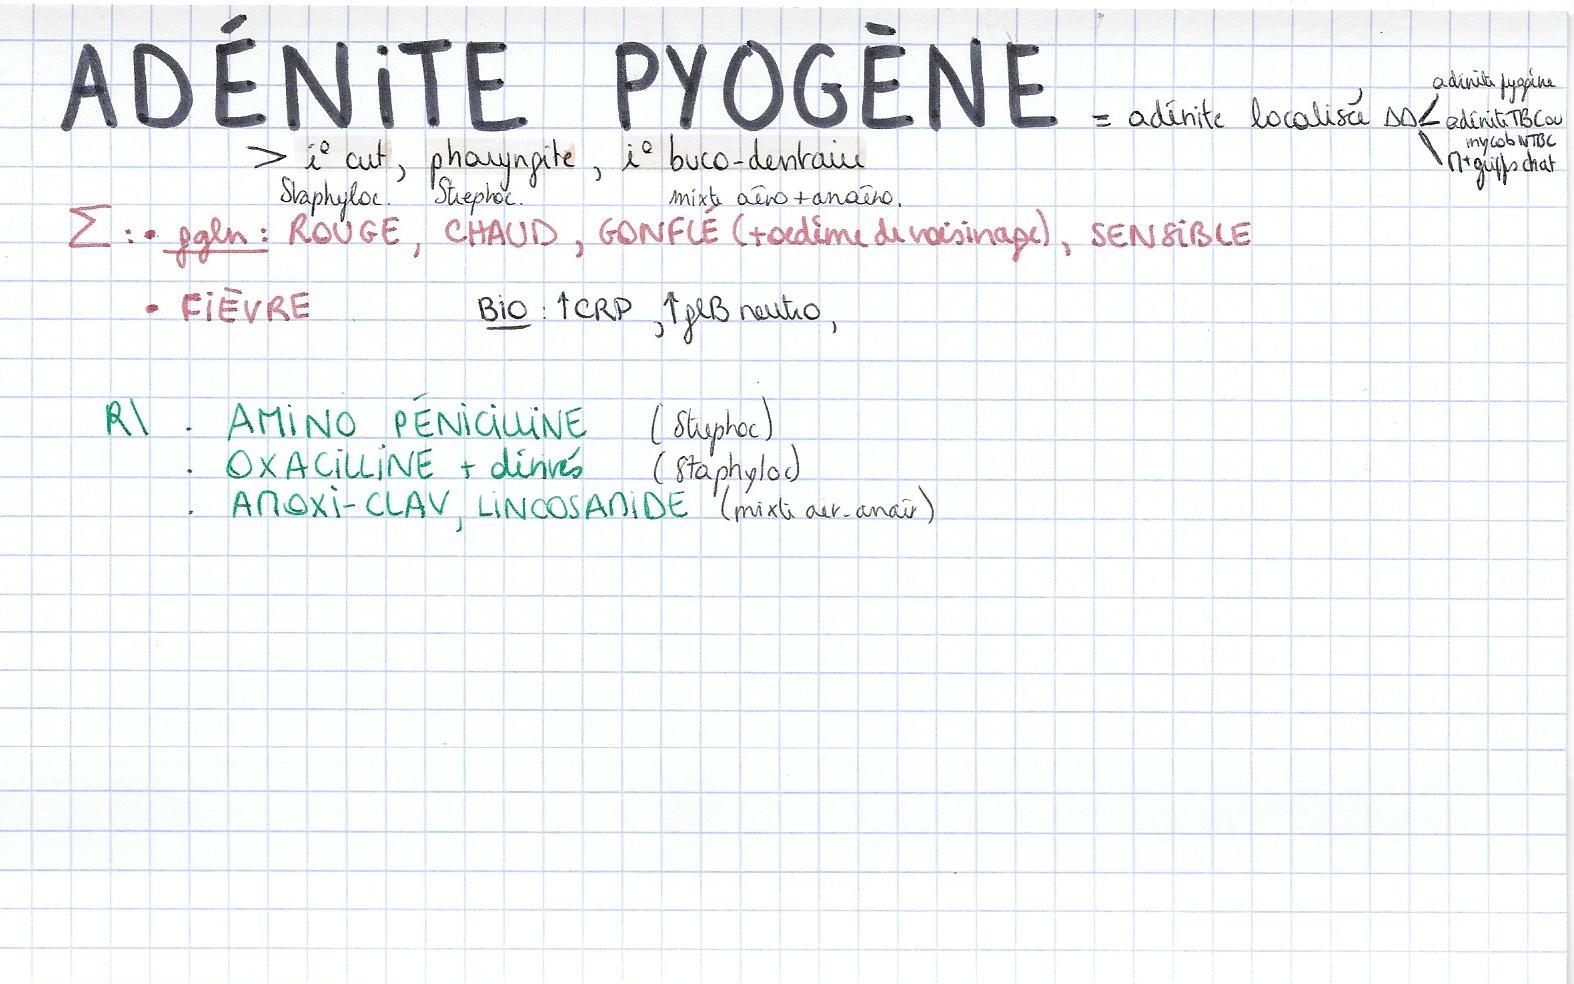 ADÉNiTE PYOGÈNE = adénite localisée ΔΔ
adénite pyogène
adénite TBC ou
mycob NTBC
M+ griffes chat
> i° cut, pharyngite, i° buco-dentaire
Staphyloc. Streptoc. mixte aéro + anaéro.
Σ : • ggln : ROUGE, CHAUD, GONFLÉ (+ oedème de voisinage), SENSiBLE
• FiÈVRE BiO : ↑ CRP, ↑ glB neutro,
R\ . AMiNO PÉNiCiLLiNE (Streptoc)
. OXACiLLiNE + dérivés (Staphyloc)
. AMOXi-CLAV, LiNCOSAMiDE (mixte aer-anaer)